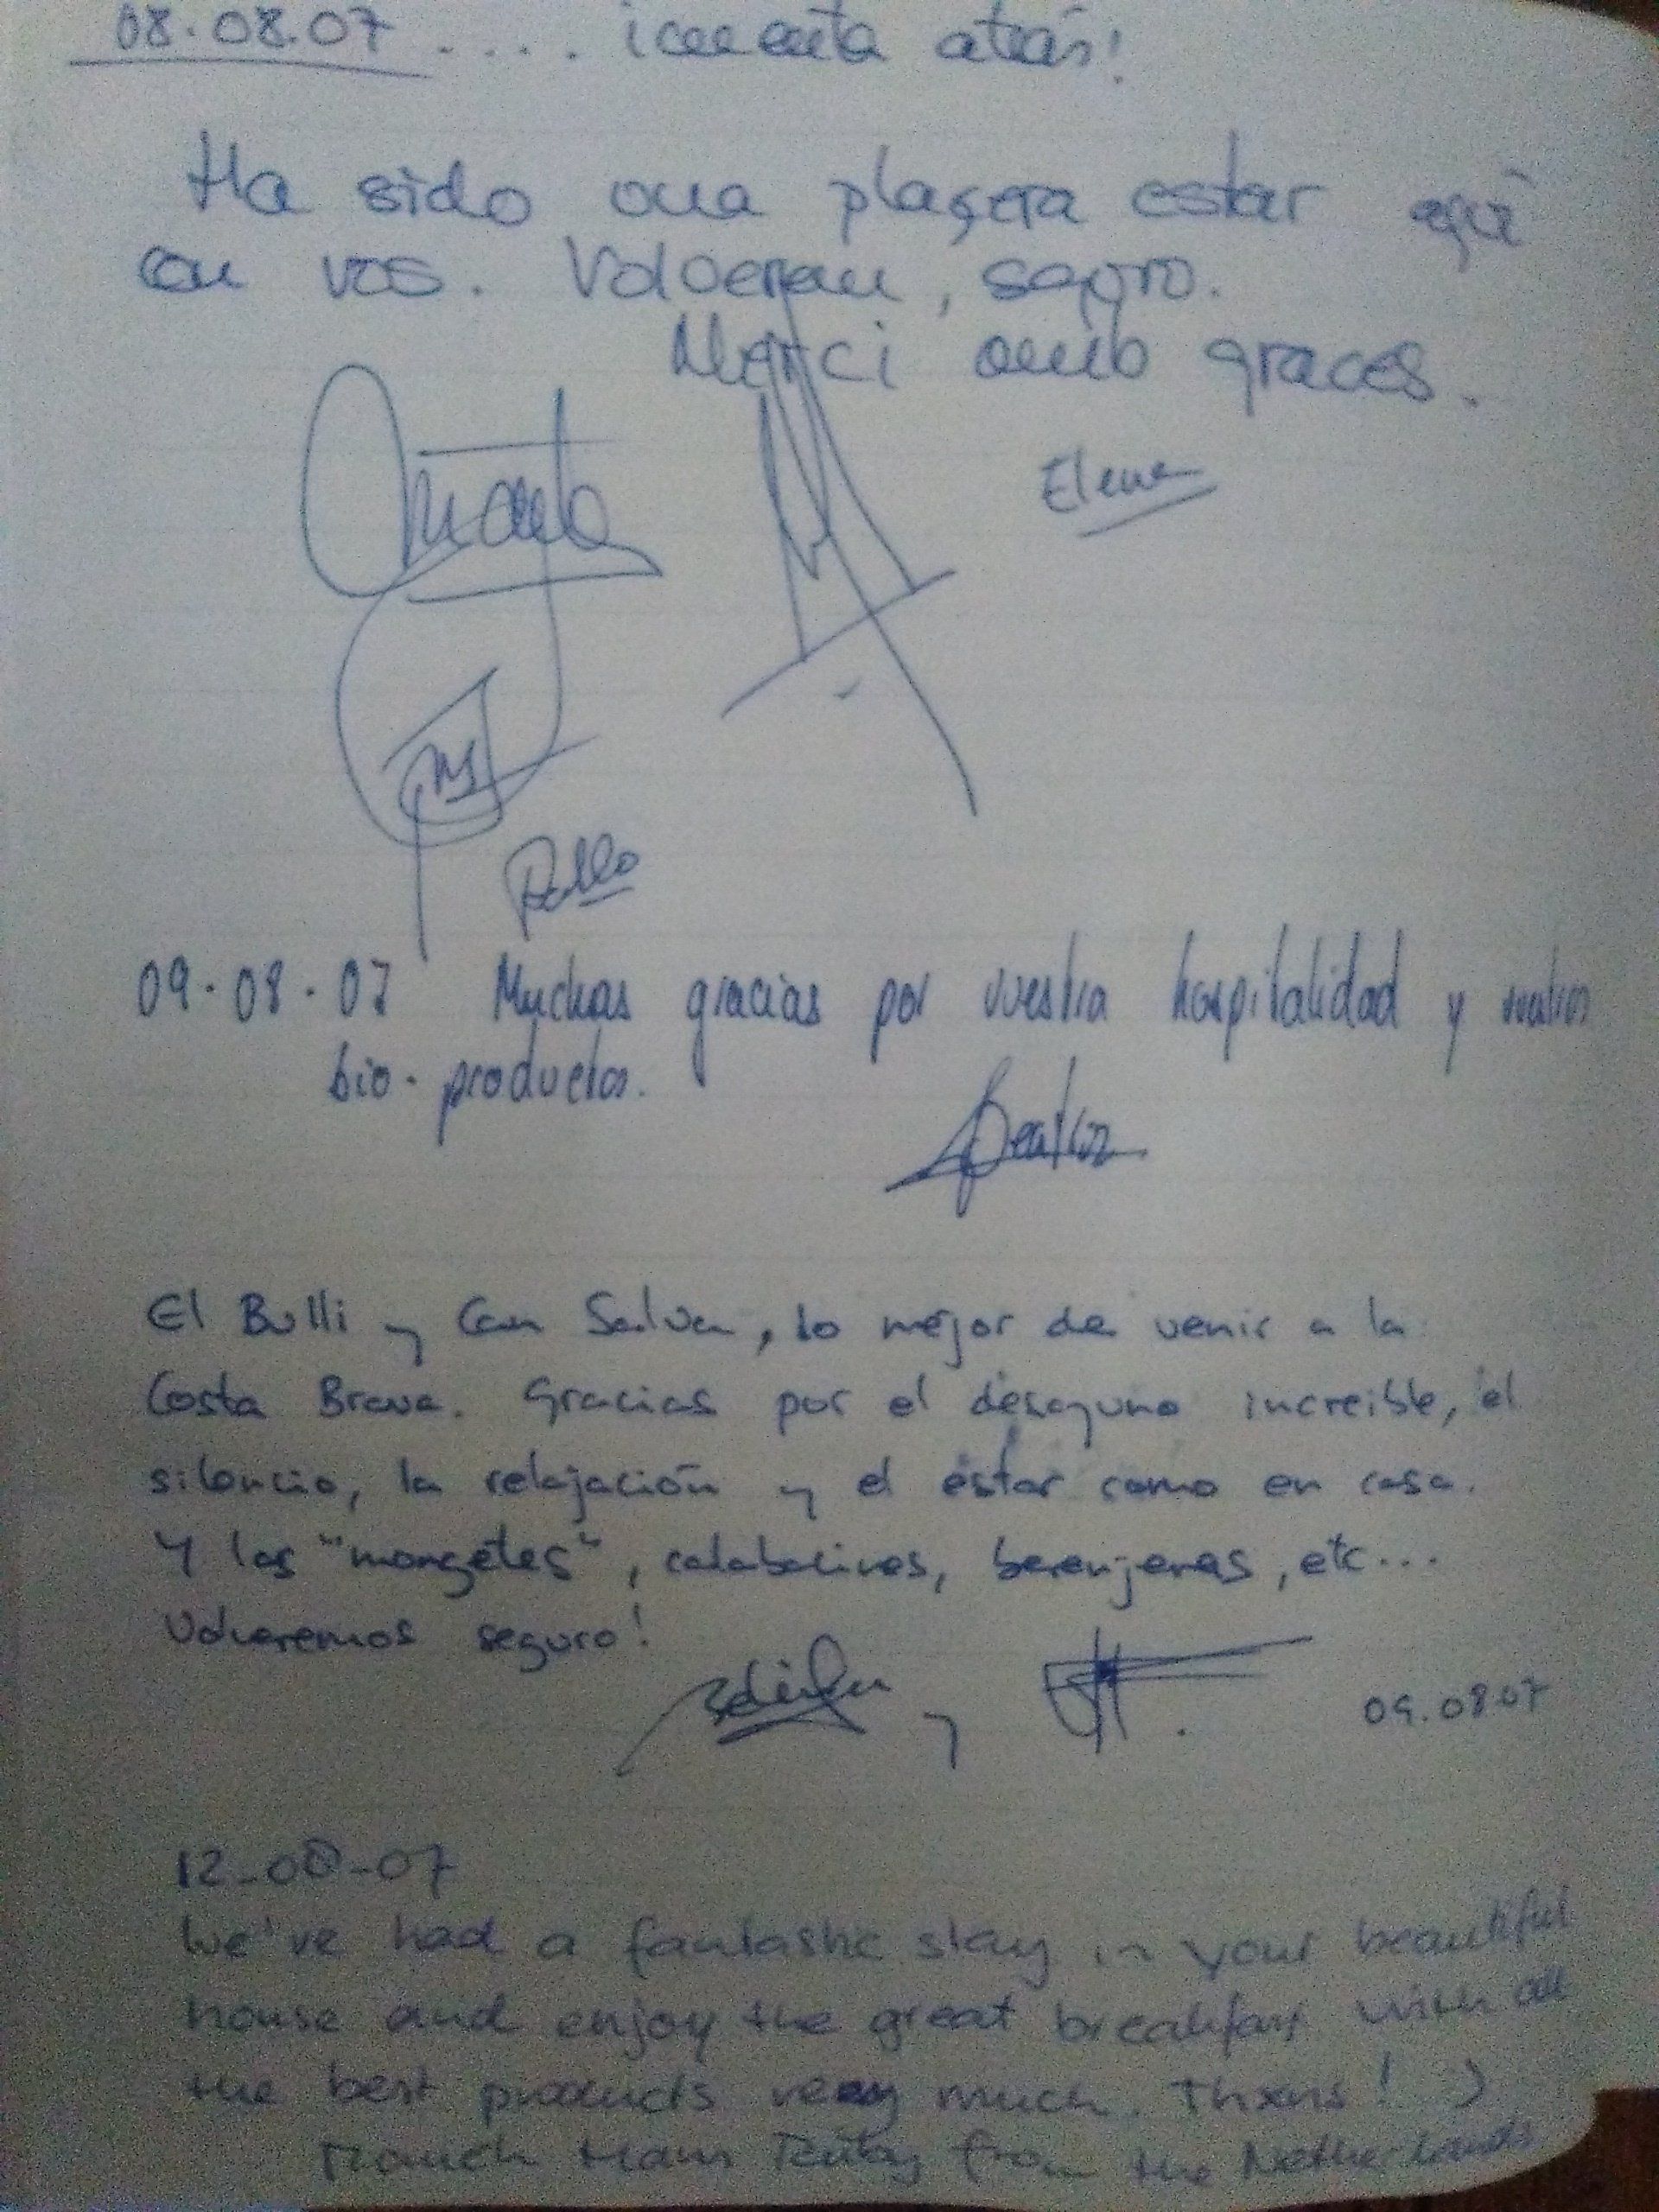 08.08.07 .... ¡cuenta atrás!
Ha sido una plaçera estar aquì
con vos. Volveram, seguro.
Merci amb graces.
Elena
09.08.07 Muchas gracias por vuestra hospitalidad y vuestros
bio-productos.
Beatriz
El Bulli y Can Salva, lo mejor de venir a la
Costa Brava. Gracias por el desayuno increible, el
silencio, la relajación y el estar como en casa.
Y las "mongetes", calabacines, berenjenas, etc...
Volveremos seguro!
y
09.08.07
12-08-07
We've had a fantastic stay in your beautiful
house and enjoy the great breakfast with all
the best products very much. Thxns! :)
from the Netherlands